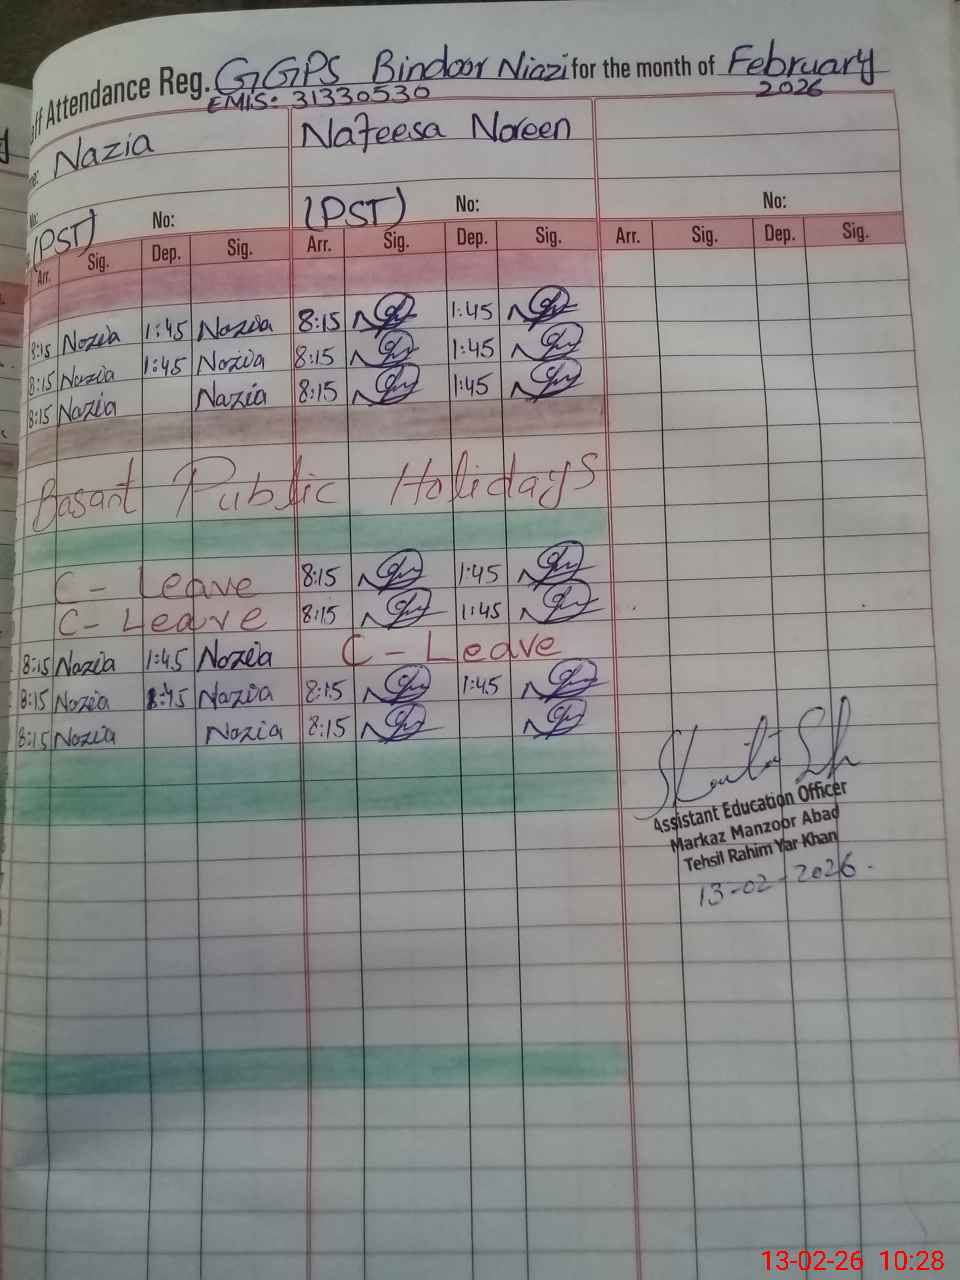 ff Attendance Reg. GGPS Bindoor Niazi for the month of February
EMIS: 31330530 2026
Nazia Nafeesa Noreen
(PST) No: (PST) No: No:
Arr. Sig. Dep. Sig. Arr. Sig. Dep. Sig. Arr. Sig. Dep. Sig.
8:15 Nazia 1:45 Nazia 8:15 1:45
8:15 Nazia 1:45 Nazia 8:15 1:45
8:15 Nazia Nazia 8:15 1:45
Basant Public Holidays
C- Leave 8:15 1:45
C- Leave 8:15 1:45
8:15 Nazia 1:45 Nazia C - Leave
8:15 Nazia 1:45 Nazia 8:15 1:45
8:15 Nazia Nazia 8:15
Assistant Education Officer
Markaz Manzoor Abad
Tehsil Rahim Yar Khan
13-02-2026.
13-02-26 10:28